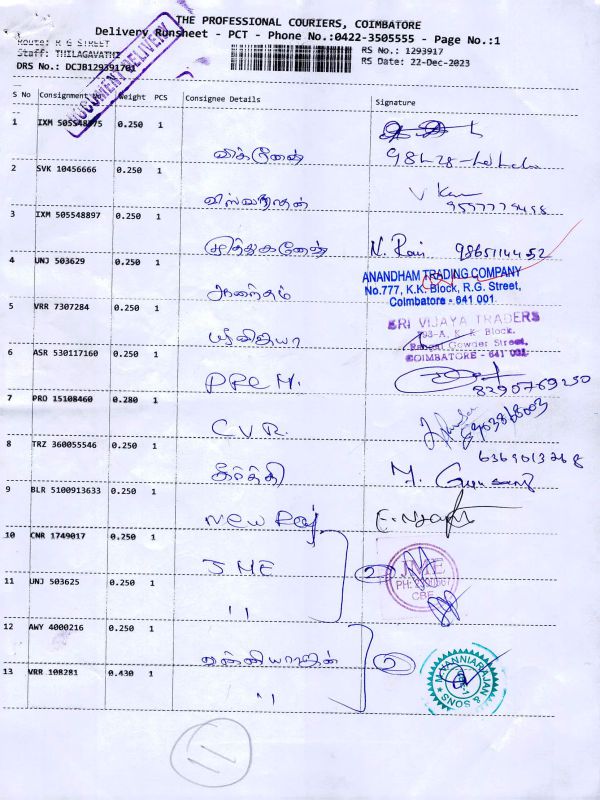 THE PROFESSIONAL COURIERS, COIMBATORE
Delivery Runsheet - PCT - Phone No.:0422-3505555 - Page No.:1
Route: R G STREET
Staff: THILAGAVATHI
DRS No.: DCJB129391701
RS No.: 1293917
RS Date: 22-Dec-2023
DOCUMENT DELIVERY
S No Consignment No Weight PCS Consignee Details Signature
1 IXM 505548875 0.250 1
விக்னேஷ்
2 SVK 10456666 0.250 1
விஸ்வநாதன்
3 IXM 505548897 0.250 1
முத்துகணேஷ் 9865114452
4 UNJ 503629 0.250 1
ஆனந்தம்
ANANDHAM TRADING COMPANY
No.777, K.K. Block, R.G. Street,
Coimbatore - 641 001
5 VRR 7307284 0.250 1
ஸ்ரீவிஜயா
SRI VIJAYA TRADERS
793-A, K. K. Block,
Rangai Gowder Street,
COIMBATORE - 641 001
6 ASR 530117160 0.250 1
PRC M. 8290769250
7 PRO 15108460 0.280 1
C.V.R.
8 TRZ 360055546 0.250 1
கீர்த்தி
9 BLR 5100913633 0.250 1
New Raj
10 CNR 1749017 0.250 1
JME 2
JME
CBE
11 UNJ 503625 0.250 1
"
12 AWY 4000216 0.250 1
வன்னியராஜன் 2
M.VANNIARAJAN & SONS
13 VRR 108281 0.430 1
"
11